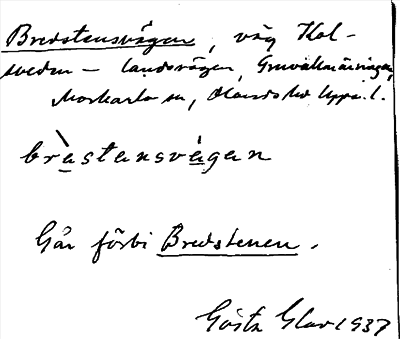 Bredstensvägen, väg Hol-
sveden – landsvägen, Gruvallmänningen,
Morkarla sn, Olands hd Uppl.
bràstansvägan
Går förbi Bredstenen.
Gösta Glav 1937